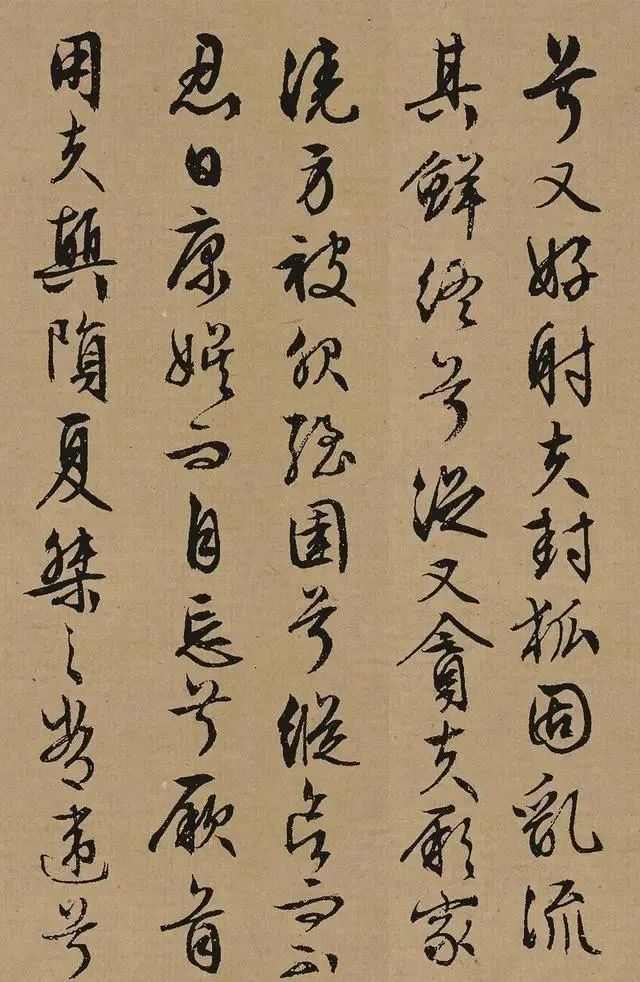 兮又好射夫封狐固亂流
其鮮終兮浞又貪夫厥家
澆身被服強圉兮縱欲而不
忍日康娛而自忘兮厥首
用夫顛隕夏桀之常違兮